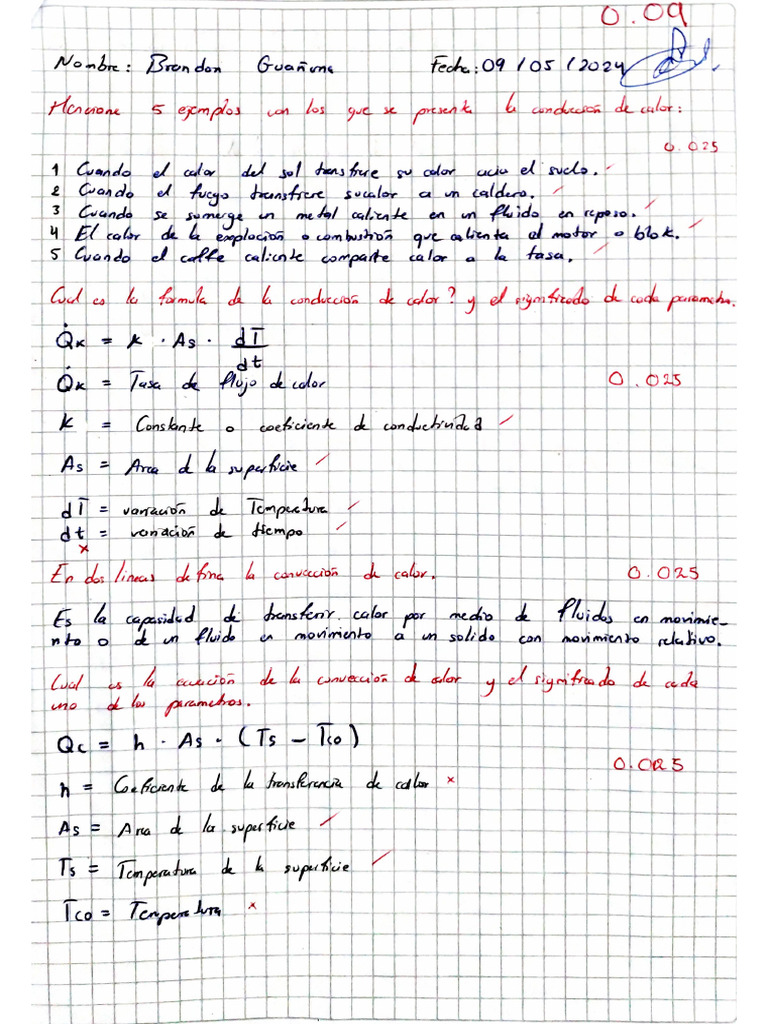 0.09
Nombre: Brandon Guañuna Fecha: 09/05/2024
Mencione 5 ejemplos con los que se presenta la conducción de calor:
0.025
1 Cuando el calor del sol transfiere su calor acia el suelo.
2 Cuando el fuego transfiere sucalor a un caldero.
3 Cuando se sumerge un metal caliente en un fluido en reposo.
4 El calor de la exploción o combustión que calienta el motor o blok.
5 Cuando el caffe caliente comparte calor a la tasa.
Cual es la formula de la conducción de calor? y el significado de cada parametro.
Q̇k = k · As · dT/dt
Q̇k = Tasa de flujo de calor 0.025
k = Constante o coeficiente de conductividad
As = Area de la superficie
dT = variación de Temperatura
dt = variación de tiempo
En dos lineas defina la convección de calor. 0.025
Es la capasidad de transferir calor por medio de fluidos en movimie-
nto o de un fluido en movimiento a un solido con movimiento relativo.
Cual es la ecuación de la convección de calor y el significado de cada
uno de los parametros.
Qc = h · As · (Ts - Tco)
0.025
h = Coeficiente de la transferencia de calor
As = Area de la superficie
Ts = Temperatura de la superficie
Tco = Temperatura